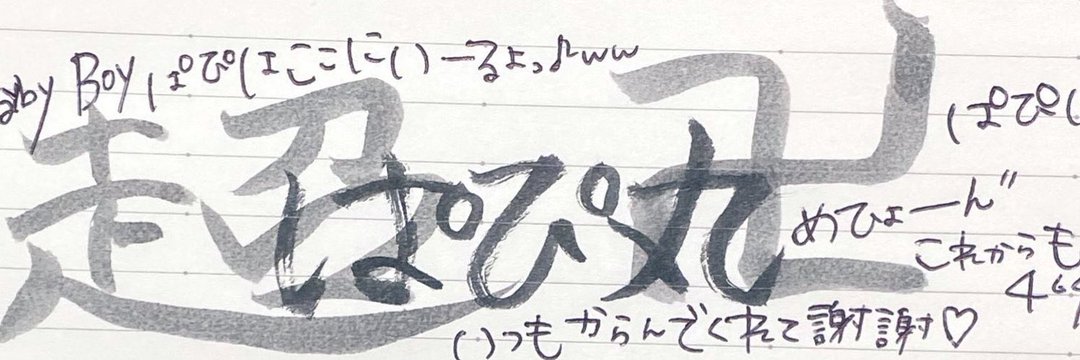 aby Boy ぱぴはここにいーるよっ♪ww
超卍
ぱぴ丸
ぱぴ
めひょーん"
これからも
いつもからんでくれて謝謝♡